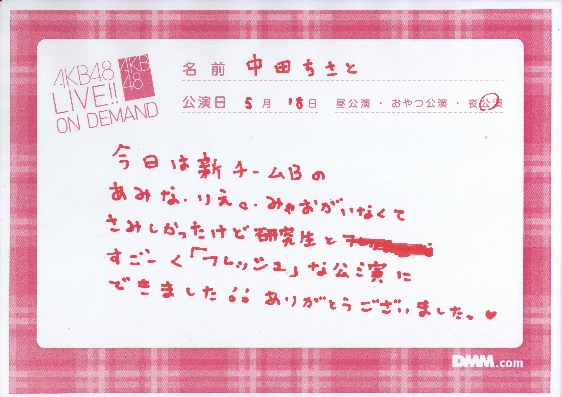 AKB48
LIVE!!
ON DEMAND
AKB
48
名前 中田ちさと
公演日 5月18日 昼公演・おやつ公演・夜公演
今日は新チームBの
あみな・りえ・みゃおがいなくて
さみしかったけど研究生と
すごーく「フレッシュ」な公演に
できました ありがとうございました。♥
DMM.com